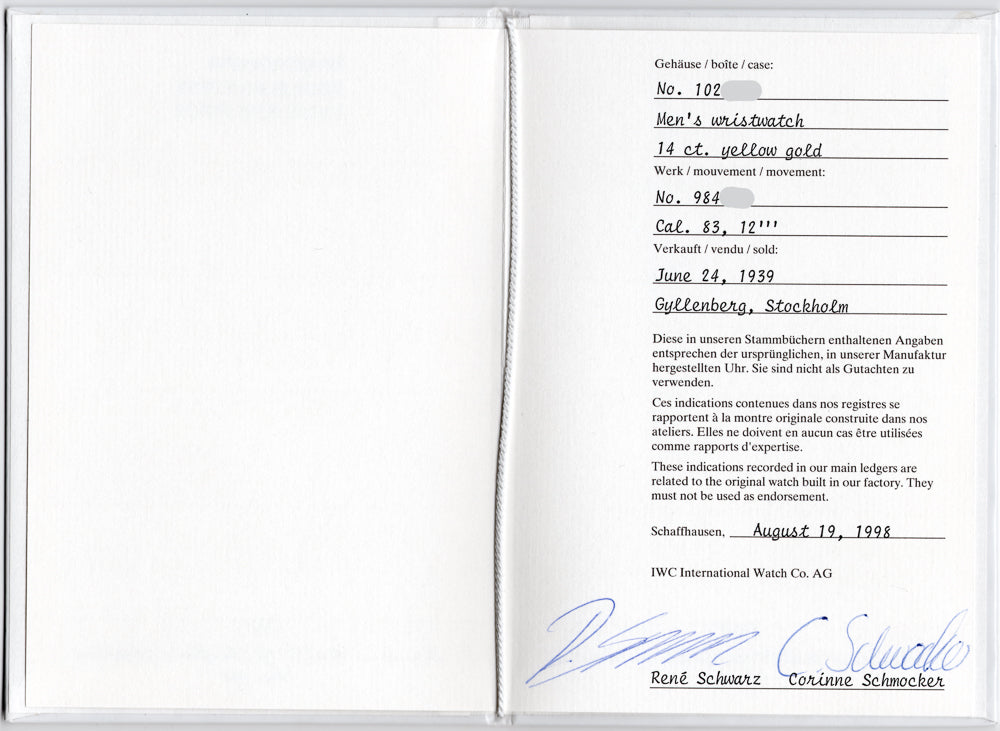 Gehäuse / boîte / case:
No. 102
Men's wristwatch
14 ct. yellow gold
Werk / mouvement / movement:
No. 984
Cal. 83, 12'''
Verkauft / vendu / sold:
June 24, 1939
Gyllenberg, Stockholm
Diese in unseren Stammbüchern enthaltenen Angaben
entsprechen der ursprünglichen, in unserer Manufaktur
hergestellten Uhr. Sie sind nicht als Gutachten zu
verwenden.
Ces indications contenues dans nos registres se
rapportent à la montre originale construite dans nos
ateliers. Elles ne doivent en aucun cas être utilisées
comme rapports d'expertise.
These indications recorded in our main ledgers are
related to the original watch built in our factory. They
must not be used as endorsement.
Schaffhausen, August 19, 1998
IWC International Watch Co. AG
René Schwarz Corinne Schmocker